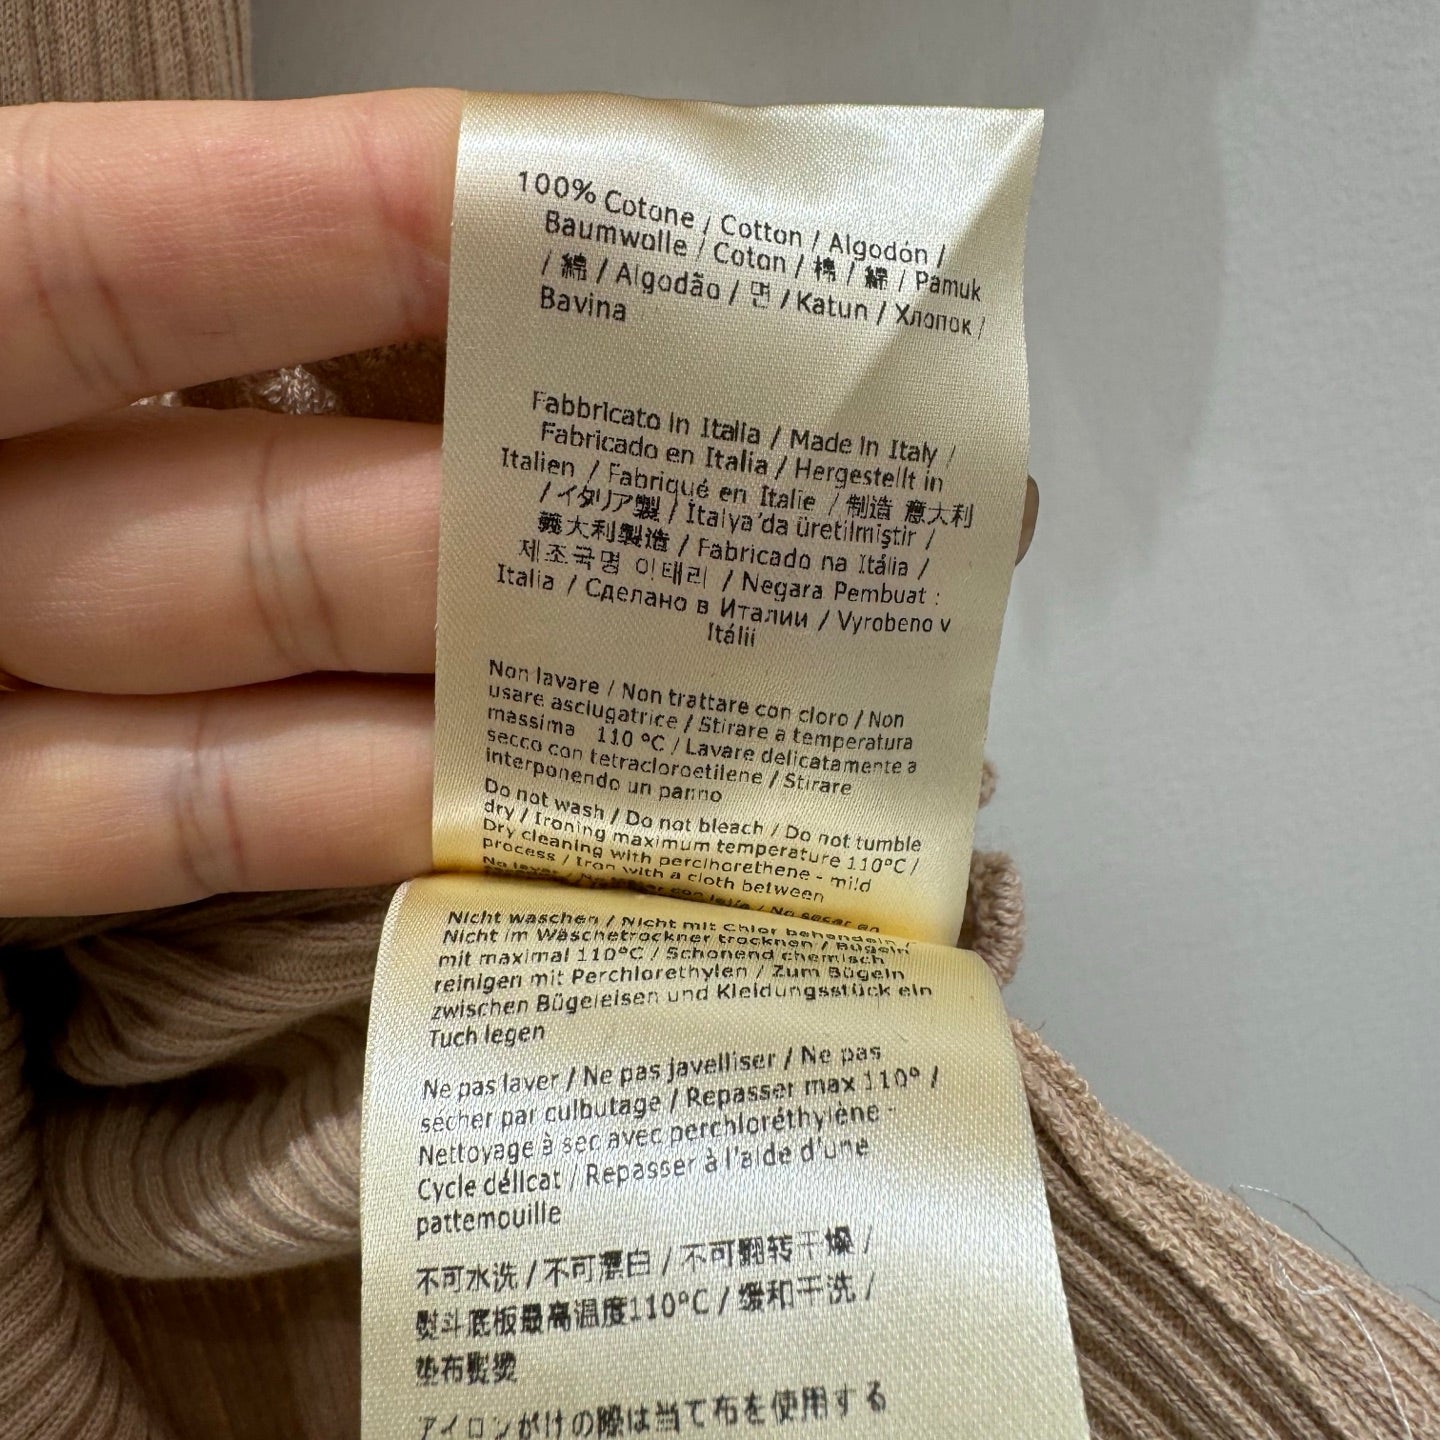 100% Cotone / Cotton / Algodón /
Baumwolle / Coton / 棉 / 綿 / Pamuk
/ 綿 / Algodão / 면 / Katun / Хлопок /
Bavlna
Fabbricato in Italia / Made in Italy /
Fabricado en Italia / Hergestellt in
Italien / Fabriqué en Italie / 制造 意大利
/ イタリア製 / İtalya'da üretilmiştir /
義大利製造 / Fabricado na Itália /
제조국명 이태리 / Negara Pembuat :
Italia / Сделано в Италии / Vyrobeno v
Itálii
Non lavare / Non trattare con cloro / Non
usare asciugatrice / Stirare a temperatura
massima 110 °C / Lavare delicatamente a
secco con tetracloroetilene / Stirare
interponendo un panno
Do not wash / Do not bleach / Do not tumble
dry / Ironing maximum temperature 110°C /
Dry cleaning with perclhorethene - mild
process / Iron with a cloth between
No lavar / No secar en
Nicht waschen / Nicht mit Chlor behandeln /
Nicht im Wäschetrockner trocknen / Bügeln
mit maximal 110°C / Schonend chemisch
reinigen mit Perchlorethylen / Zum Bügeln
zwischen Bügeleisen und Kleidungsstück ein
Tuch legen
Ne pas laver / Ne pas javelliser / Ne pas
sécher par culbutage / Repasser max 110° /
Nettoyage à sec avec perchloréthylène -
Cycle délicat / Repasser à l'aide d'une
pattemouille
不可水洗 / 不可漂白 / 不可翻转干燥 /
熨斗底板最高温度110°C / 缓和干洗 /
垫布熨烫
アイロンがけの際は当て布を使用する